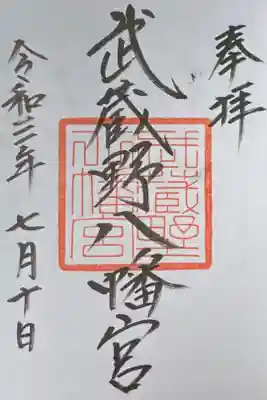 奉拝
武蔵野八幡宮
令和三年七月十日
武蔵野八幡宮